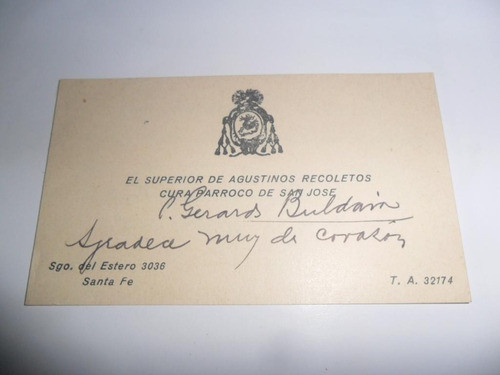 EL SUPERIOR DE AGUSTINOS RECOLETOS
CURA PARROCO DE SAN JOSE
P. Gerardo Buldain
Agradece muy de corazón
Sgo. del Estero 3036
Santa Fe
T. A. 32174